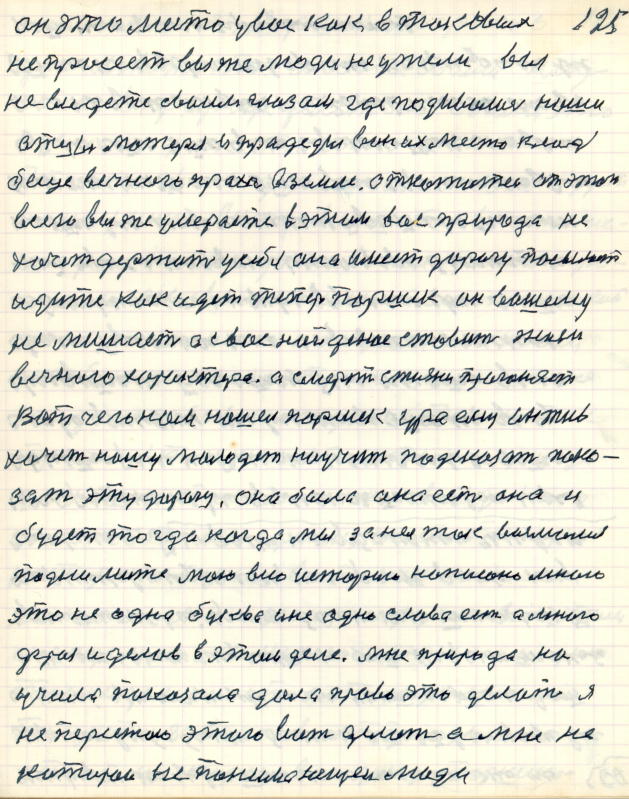 он это место у вас как в таковых 125
не просеет вы же люди неужели вы
не видете своим глазам где подивалися наши
отцы матеря и прадеды вони их место клад
бище вечного праха в земле. откотитеся от этого
всего вы же умераете в этом вас природа не
хочет держать у себя она имеет дорогу посылает
идите как идет тепер Паршек он вашему
не мишает а свое найденое ставит жизни
вечного характера. а смерть с жизни прогоняет
Вот чего нам нашел паршек ура ему он жив
хочет нашу молодеж научит подсказат пока-
зат эту дорогу. она была она ест она и
будет тогда когда мы за нея так возмемся
поднимите мою всю историю написано много
это не одна буква и не одно слова ест а много
фраз и делов в этом деле. мне природа на
учила показала дала право это делат я
не перестаю этого вот делат а мне не
которои не понимающеи люди